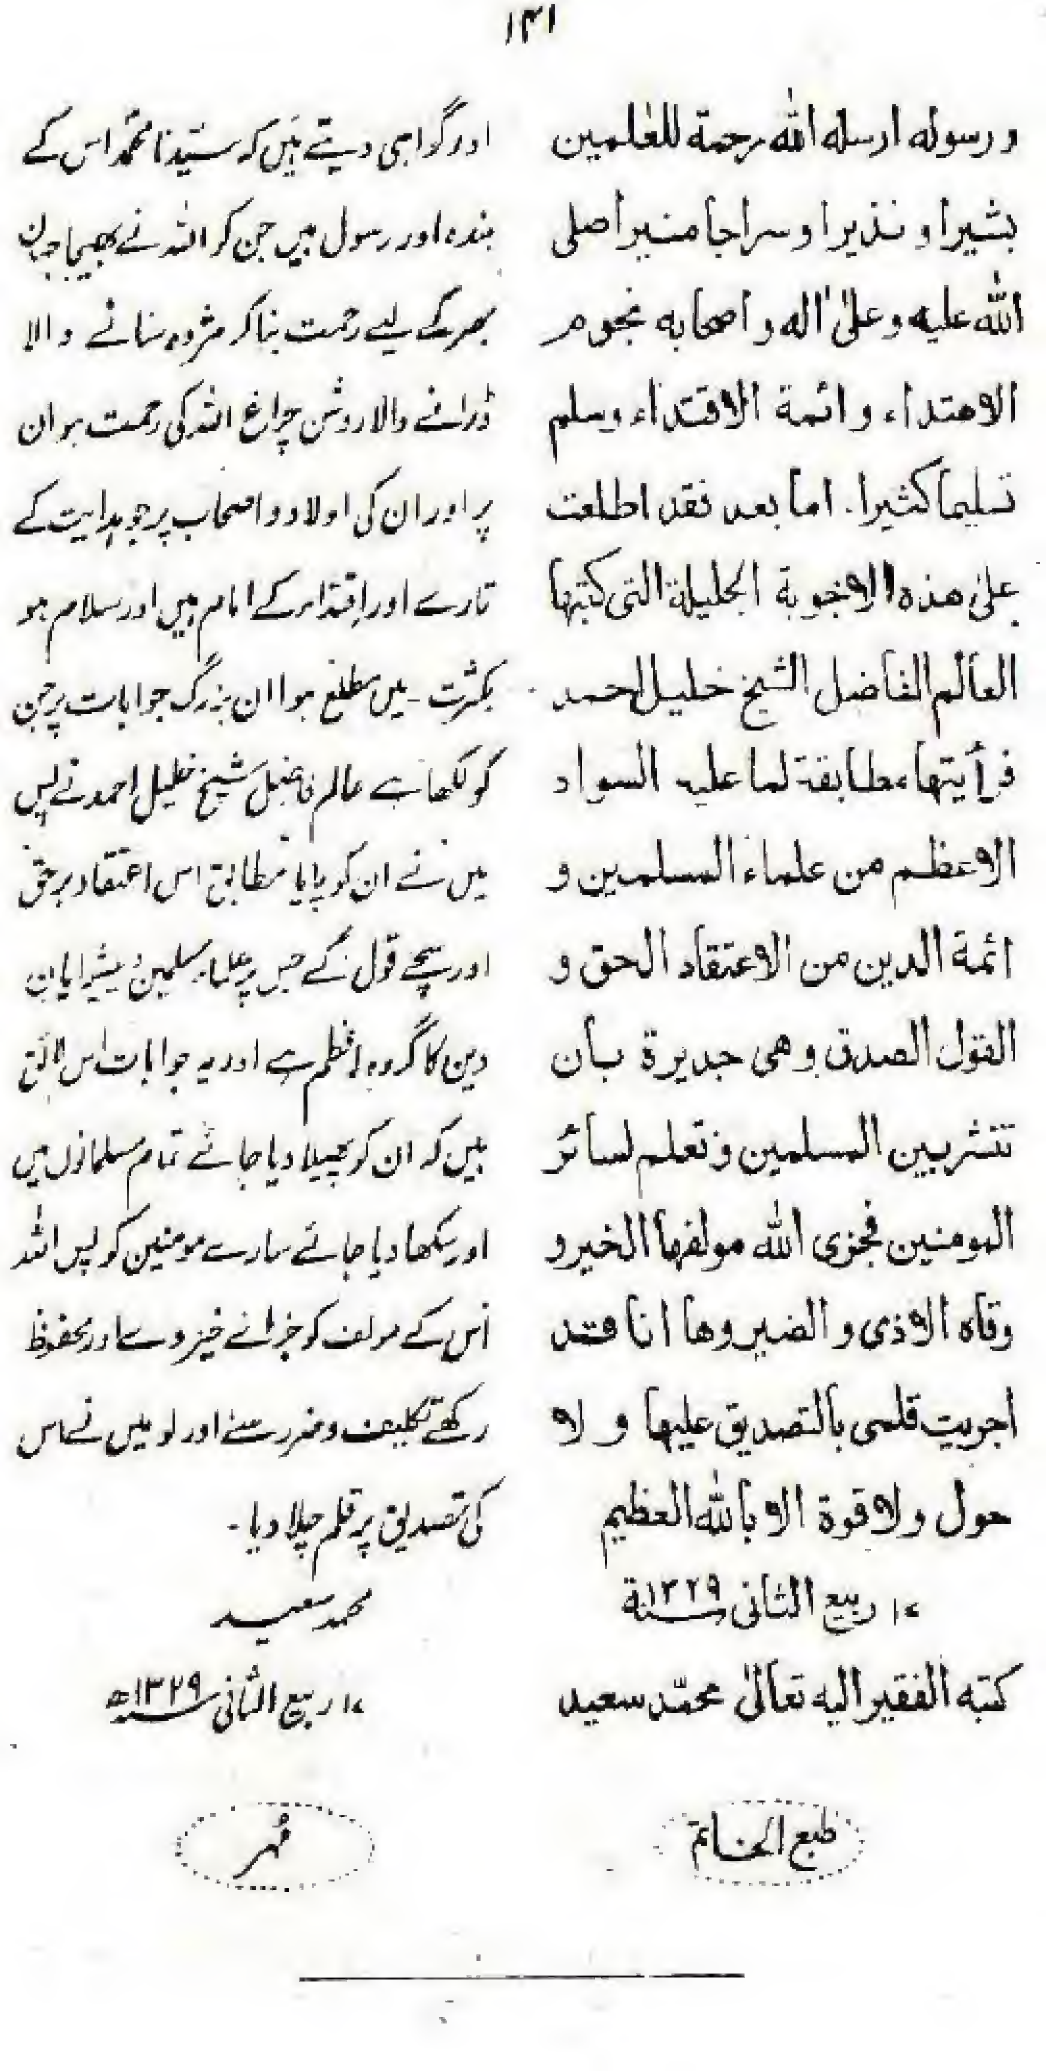 ۱۴۱
و رسوله ارسله الله رحمة للعٰلمين
بشيرا و نذيرا و سراجا منيرا صلى
الله عليه و علىٰ اٰله و اصحابه نجوم
الاهتداء و ائمة الاقتداء وسلم
تسليما كثيرا. اما بعد فقد اطلعت
علىٰ هذه الاجوبة الجليلة التى كتبها
العالم الفاضل الشيخ خليل احمد
فرأيتها مطابقة لما عليه السواد
الاعظم من علماء المسلمين و
ائمة الدين من الاعتقاد الحق و
القول الصدق وهى جديرة بأن
تنشر بين المسلمين وتعلم لسائر
المومنين فجزى الله مولفها الخير و
وقاه الاذى و الضير وها انا قد
اجريت قلمى بالتصديق عليها و لا
حول ولا قوة الا بالله العظيم
۱۷ ربيع الثانى سنة ۱۳۲۹
كتبه الفقير اليه تعالىٰ محمّد سعيد
طبع الخاتم
اور گواہی دیتے ہیں کہ سیّدنا محمّد اس کے
بندہ اور رسول ہیں جن کو اللہ نے بھیجا جہان
بھر کے لیے رحمت بنا کر مژدہ سنانے والا
ڈرانے والا روشن چراغ اللہ کی رحمت ہو ان
پر اور ان کی اولاد و اصحاب پر جو ہدایت کے
تارے اور اقتداء کے امام ہیں اور سلام ہو
بکثرت ۔ میں مطلع ہوا ان بزرگ جوابات پر جن
کو لکھا ہے عالم فاضل شیخ خلیل احمد نے پس
میں نے ان کو پایا مطابق اس اعتقاد برحق
اور سچے قول کے جس پر علماء مسلمین و پیشوایان
دین کا گروہ اعظم ہے اور یہ جوابات اس لائق
ہیں کہ ان کو پھیلا دیا جائے تمام مسلمانوں میں
اور سکھا دیا جائے سارے مومنین کو پس اللہ
اس کے مولف کو جزائے خیر دے اور محفوظ
رکھے تکلیف و ضرر سے اور لو میں نے اس
کی تصدیق پر قلم چلا دیا ۔
محمد سعید
۱۷ ربیع الثانی سنہ ۱۳۲۹ھ
مُہر